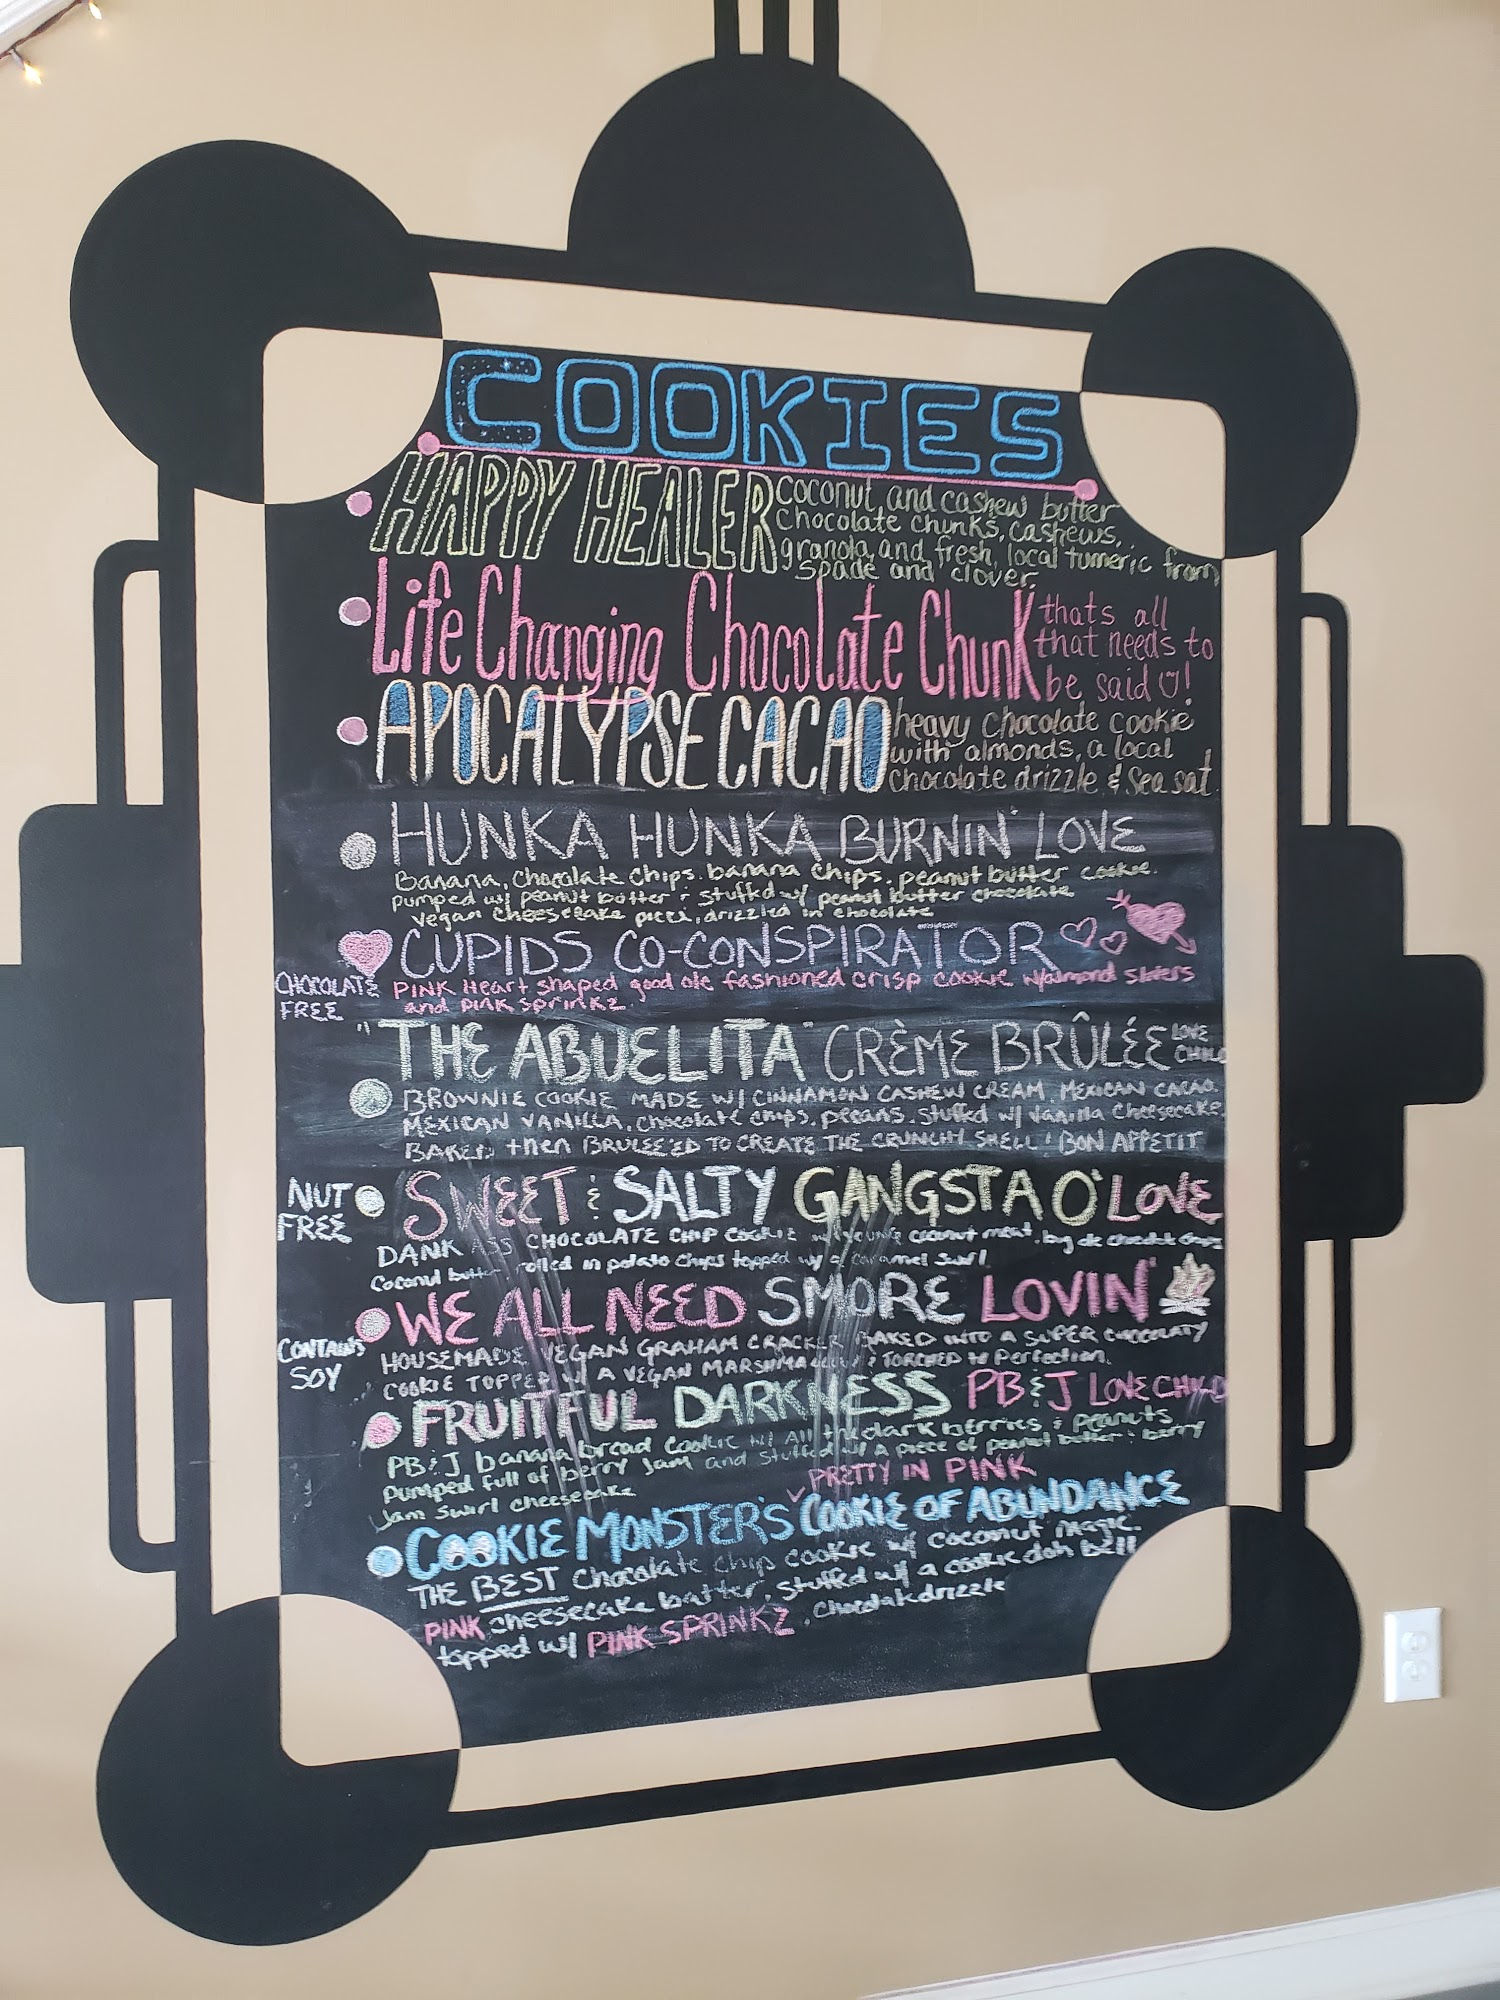 COOKIES
HAPPY HEALER coconut, and cashew butter
chocolate chunks, cashews,
granola, and fresh, local tumeric from
spade and clover.
Life Changing Chocolate Chunk thats all
that needs to
be said!
APOCALYPSE CACAO heavy chocolate cookie
with almonds, a local
chocolate drizzle & sea sat.
HUNKA HUNKA BURNIN' LOVE
Banana, chocolate chips, banana chips, peanut butter cookie.
pumped w/ peanut butter & stuffd w/ peanut butter chocolate
vegan cheesecake piece, drizzled in chocolate
CUPIDS CO-CONSPIRATOR
CHOCOLATE FREE
PINK Heart shaped good ole fashioned crisp cookie w/almond slivers
and pink sprinkz.
"THE ABUELITA" CRÈME BRÛLÉE LOVE CHILD
BROWNIE COOKIE MADE W/ CINNAMON CASHEW CREAM, MEXICAN CACAO,
MEXICAN VANILLA, chocolate chips, pecans, stuffed w/ vanilla cheesecake,
BAKED, then BRULEE'ED TO CREATE THE CRUNCHY SHELL! BON APPETIT
NUT FREE
SWEET & SALTY GANGSTA O' LOVE
DANK ASS CHOCOLATE CHIP COOKIE w/ young coconut meat,
coconut butter, rolled in potato chips topped w/ a caramel swirl
WE ALL NEED SMORE LOVIN'
CONTAINS SOY
HOUSEMADE VEGAN GRAHAM CRACKER BAKED INTO A SUPER CHOCOLATY
COOKIE TOPPED w/ A VEGAN MARSHMALLOW & TORCHED to Perfection.
FRUITFUL DARKNESS PB&J LOVECHILD
PB&J banana bread cookie w/ All the dark berries & peanuts
pumped full of berry jam and stuffed w/ a piece of peanut butter & berry
jam swirl cheesecake
PRETTY IN PINK
COOKIE MONSTER'S COOKIE OF ABUNDANCE
THE BEST chocolate chip cookie w/ coconut magic.
PINK cheesecake batter, stuffed w/ a cookie doh ball
topped w/ PINK SPRINKZ, chocolate drizzle